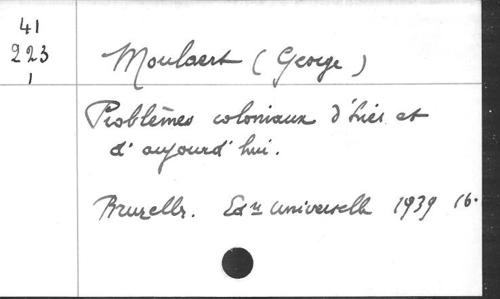 41
223
1
Moulaert (George)
Problèmes coloniaux d'hier et
d'aujourd'hui.
Bruxelles. Edⁿ universelle 1939 16.